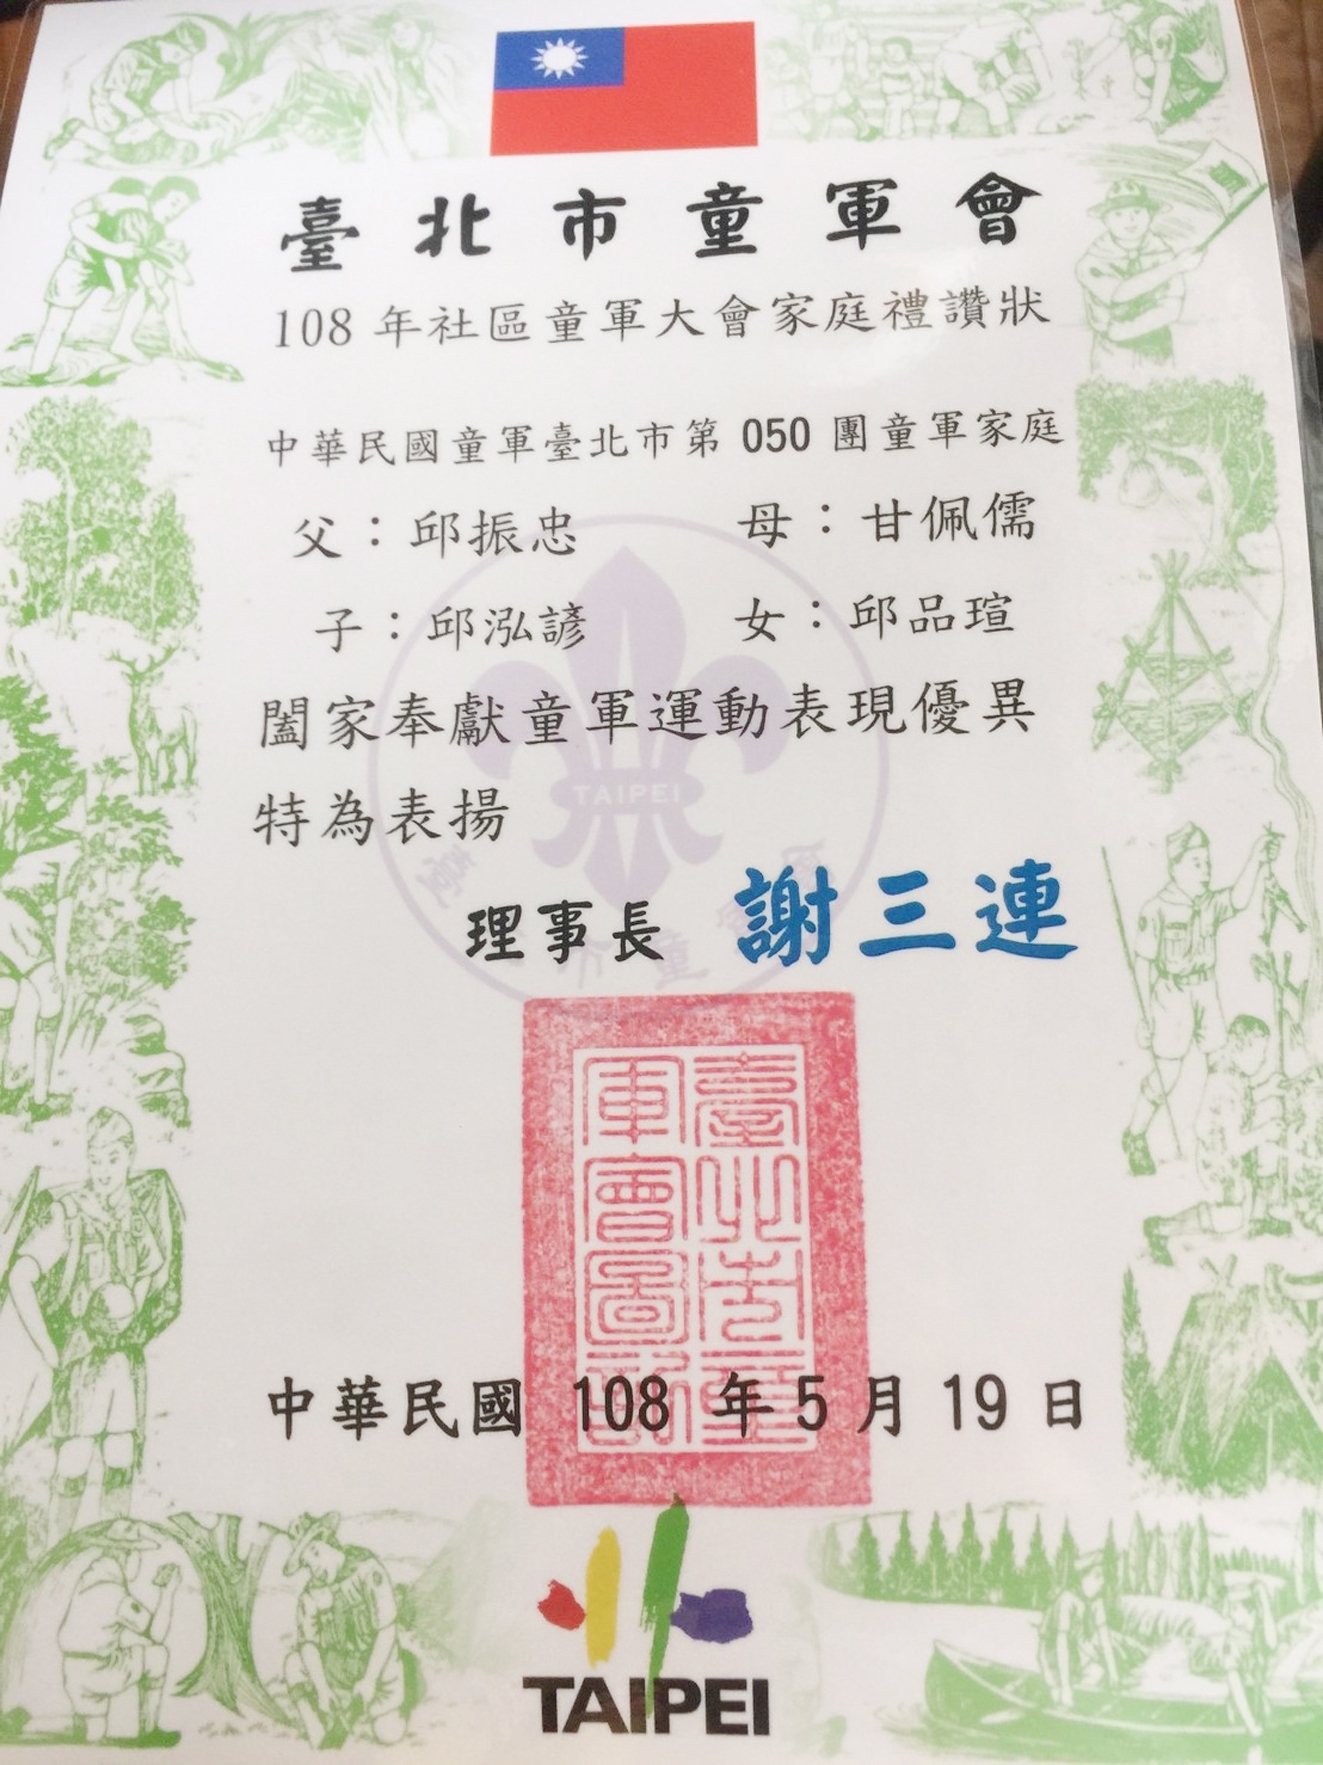 臺北市童軍會
108 年社區童軍大會家庭禮讚狀
中華民國童軍臺北市第 050 團童軍家庭
父：邱振忠 母：甘佩儒
子：邱泓諺 女：邱品瑄
闔家奉獻童軍運動表現優異
特為表揚
TAIPEI
理事長 謝三連
臺北市童軍會圖記
中華民國 108 年 5 月 19 日
TAIPEI